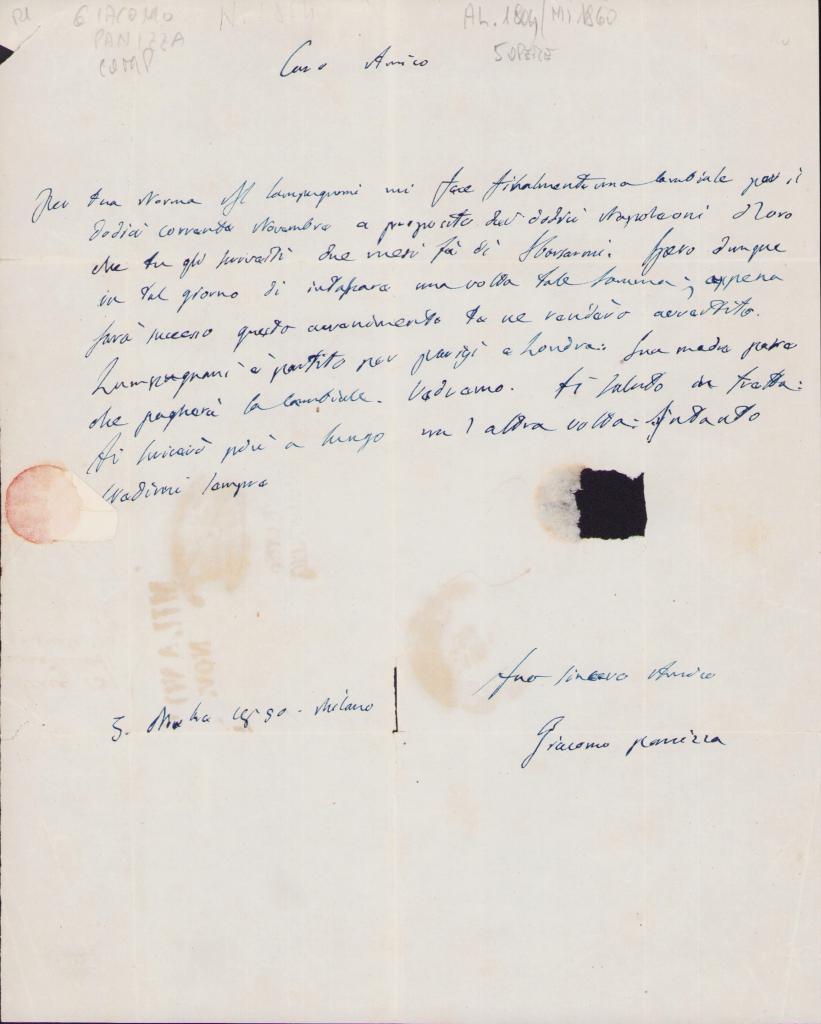 GIACOMO
PANIZZA
COMP
AL. 1804/MI 1860
5 OPERE
Caro Amico
Per tua Norma il Lampugnani mi fece finalmente una Cambiale per il
dodici corrente Novembre a proposito dei dodici Napoleoni d'oro
che tu gli scrivesti due mesi fà di sborsarmi. Spero dunque
in tal giorno di intascare una volta tale somma; appena
sarà successo questo avvenimento te ne renderò avvertito.
Lampugnani è partito per parigi e Londra: sua madre pare
che pagherà la Cambiale. Vedremo. Ti saluto in fretta:
Ti scriverò più a lungo un'altra volta: Intanto
credimi sempre
MILANO
NOV.
Tuo sincero Amico
5. Milano
Giacomo panizza